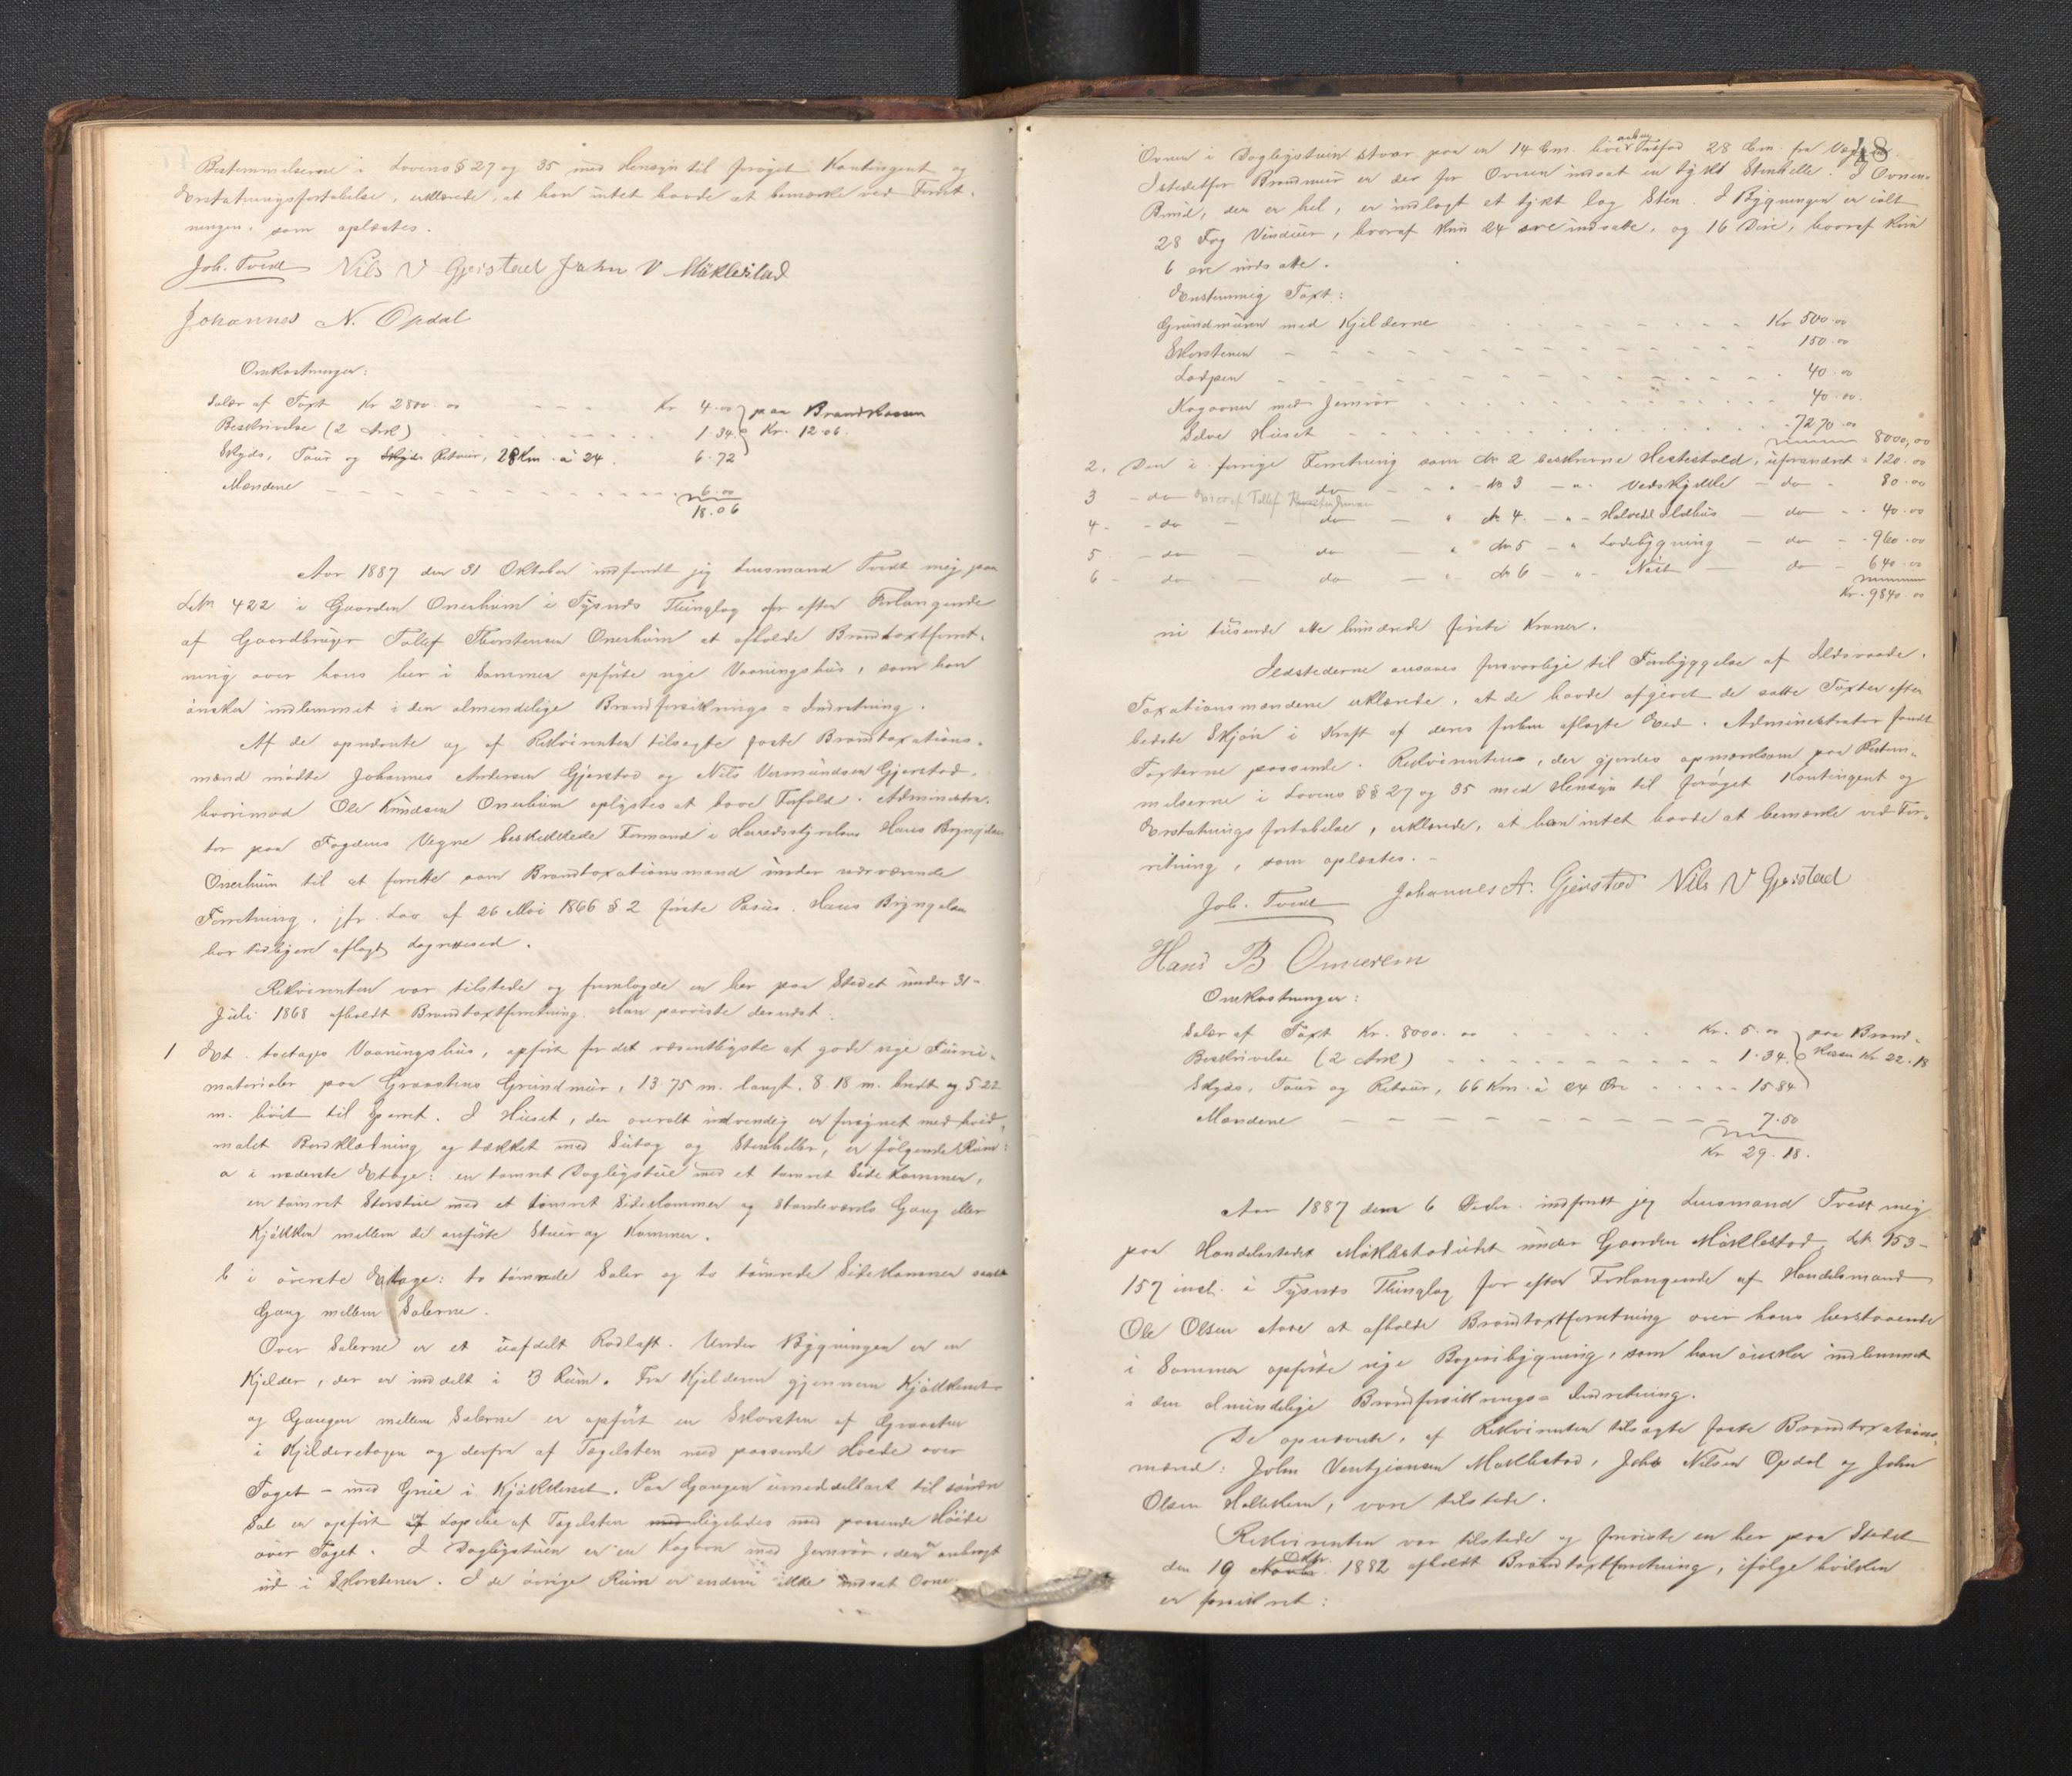 Bestemmelserne i Lovens § 27 og 35 med Hensyn til forøget Kontingent og
Erstatningsfortabelse, erklærede, at han intet havde at bemærke ved Forret-
ningen, som oplæstes.
Joh. Tvedt Nils V Gjerstad John V Mäklestad
Johannes N. Opdal
Omkostninger:
Salær af Taxt Kr 2800.00 - - - Kr 4.00 } paa Brandkassen
Beskrivelse (2 Ark) . . . . 1.34 } Kr. 12.06.
Skyds, Tour og Retour, 28 Km. a 24. 6.72
Mændene - - - - 6.00
18.06
Aar 1887 den 31 Oktober indfandt jeg Lensmand Tvedt mig paa
L.No 422 i Gaarden Onerhiim i Tysnæs Thinglag for efter Forlangende
af Gaardbruger Tollef Thorstensen Onerhiim at afholde Brandtaxtforret-
ning over hans her i Sommer opførte nye Vaaningshus, som han
ønsker indlemmet i den almindelige Brandforsikrings-Indretning.
Af de opnævnte og af Rekvirenten tilsagte faste Brandtaxations-
mænd mødte Johannes Andersen Gjerstad og Nils Vermundsen Gjerstad,
hvorimod Ole Knudsen Onerhiim oplystes at have Forfald. Administra-
tor paa Fogdens Vegne beskikkede Formand i Herredsstyrelsen Hans Bryngelsen
Onerhiim til at forrette som Brandtaxationsmand under nærværende
Forretning, jfr. Lov af 26 Mai 1866 § 2 første Passus. Hans Bryngelsen
har tidligere aflagt Lagretteséd.
Rekvirenten var tilstede og fremlagde en her paa Stedet under 31-
Juli 1868 afholdt Brandtaxtforretning. Han paaviste dernæst:
1 Et toetages Vaaningshus, opført for det væsentligste af gode nye Furu-
materialer paa Graastens Grundmur, 13.75 m. langt, 8.18 m. bredt og 5.22
m. høit til Sperret. I Huset, der overalt indvendig er forsynet med hvid-
malet Bordklædning og tækket med Sutag og Stenheller, er følgende Rum:
a i nederste Etage: en tømret Dagligstue med et tømret Sidekammer,
en tømret Storstue med et tømret Sidekammer og Standværks Gang eller
Kjøkken mellem de anførte Stuer og Kammer.
b i øverste Etage: to tømrede Saler og to tømrede Sidekammer samt
Gang mellem Salerne.
Over Salerne er et uafdelt Rodlaft. Under Bygningen er en
Kjelder, der er inddelt i 3 Rum. Fra Kjelderen gjennem Kjøkkenet
og Gangen mellem Salerne er opført en Skorsten af Graasten
i Kjelderetagen og derfra af Tegelsten med passende Høide over
Taget - med Grue i Kjøkkenet. Paa Gangen umiddelbart til søndre
Sal er opført en Lopeise af Tegelsten ligeledes med passende Høide
over Taget. I Dagligstuen er en Kogovn med Jernrør, den anbragt
ud i Skorstenen. I de øvrige Rum er endnu ikke indsat Ovne.
48
Ovnen i Dagligstuen staar paa en 14 Cm. høi Træfod 28 Cm. fra Væggen.
Istedetfor Brandmur er der for Ovnen indsat en tykt Stenhelle. I Ovnens
Bund, der er hel, er indlagt et tykt lag Sten. I Bygningen er ialt
28 Fag Vinduer, hvoraf kun 24 ere indsatte, og 16 Døre, hvoraf kun
6 ere indsatte.
Enstemmig Taxt:
Grundmuren med Kjelderne . . . . Kr 500.00
Skorstenen - - - - 150.00
Lospen - - - - 40.00
Kogovnen med Jernrør . . . . 40.00.
Selve Huset - - - - 7270.00
8000,00
2. Den i forrige Forretning som No 2 beskrevne Hestestald, uforandret - 120.00
3 - do Eieraf Tollef do - " - No 3 - " - Vedskykke - do - 80.00
4 - do - do - " No 4 - " - Halvedel Ildhus - do - 40.00
5 - do - do - " No 5 - " Ladebygning - do - 960.00
6 - do - do - " - No 6 - " - Nøst - do - 640.00
Kr. 9840.00
ni tusende otte hundrede firti Kroner.
Ildstederne ansaaes forsvarlige til Forebyggelse af Ildsvaade.
Taxationsmændene erklærede, at de havde afgivet de satte Taxter efter
bedste Skjøn i Kraft af deres forhen aflagte Ed. Administrator fandt
Taxterne passende. Rekvirenten, der gjordes opmærksom paa Bestem-
melserne i Lovens §§ 27 og 35 med Hensyn til forøget Kontingent og
Erstatningsfortabelse, erklærede, at han intet havde at bemærke ved For-
retning, som oplæstes. -
Joh. Tvedt Johannes A. Gjerstad Nils V Gjerstad
Hans B Onnerem
Omkostninger:
Salær af Taxt Kr. 8000.00 - - - Kr. 5.00 } paa Brand-
Beskrivelse (2 Ark) - - - - 1.34. } kassen Kr 22.18
Skyds, Tour og Retour, 66 Km. à 24 Øre - - - 15.84
Mændene - - - - 7.00
Kr 29.18.
Aar 1887 den 6 Decbr. indfandt jeg Lensmand Tvedt mig
paa Handelsstedet under Gaarden Mäklestad, L.No 153-
157 incl. i Tysnæs Thinglag for efter Forlangende af Handelsmand
Ole Olsen at afholde Brandtaxtforretning over hans herstaaende
i Sommer opførte nye Bageribygning, som han ønsker indlemmet
i den almindelige Brandforsikrings-Indretning.
De opnævnte, af Rekvirenten tilsagte faste Brandtaxations-
mænd: John Mäklestad, Johs Nilsen Opdal og John
Olsen, vare tilstede.
Rekvirenten var tilstede og foreviste en her paa Stedet
den 19 1882 afholdt Brandtaxtforretning, ifølge hvilken
er forsikret: